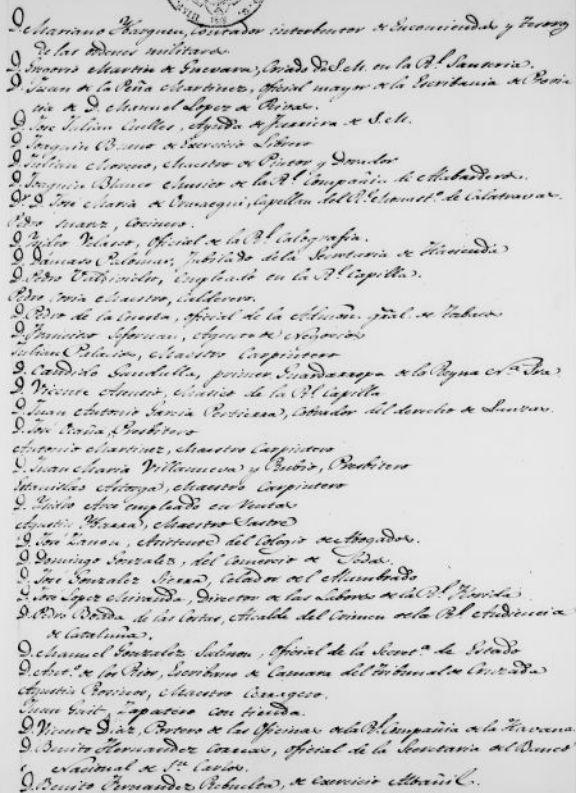 D. Mariano Ibarguen, Contador interbentor de Encomiendas y
de las ordenes militares.
D. Gregorio Martin de Guevara, Criado de S.M. en la Rl.
D. Juan de la Peña Martinez, oficial mayor de la Escribania de Provin
cia de D. Manuel Lopez de
D. Jose Julian Cuellar, Ayuda de Furriera de S.M.
D. Joaquin Bueno de Exercicio Librero
D. Julian Moreno, Maestro de Pintor y Dorador
D. Joaquin Blanco Musico de la Rl. Compañia de Alabarderos.
Dr. D. José Maria de Capellan del Rl. Monastº. de Calatravas.
Pedro Suarez, Cocinero.
D. Isidro Velasco, Oficial de la Rl. Calografia.
D. Damaso Palomar, Jubilado de la Secretaria de Hacienda
D. Pedro empleado en la Rl. Capilla.
Pedro Coria Maestro, Calderero.
D. Pedro de la Cuesta, oficial de la Admon. gral. de Tabaco
D. Francisco Agente de Negocios
Julian Palacios, Maestro Carpintero
D. Candido primer Guardarropa de la Reyna Na. Sra.
D. Vicente Asensio, Musico de la Rl. Capilla
D. Juan Antonio Garcia Cobrador del derecho de Lanzas.
D. José Ocaña, Presbitero
Antonio Martinez, Maestro Carpintero
D. Juan Maria Villanueva y Rubio, Presbitero
Estanislao Astorga, Maestro Carpintero
D. Isidro Arce empleado en Rentas
Agustin Maestro Sastre
D. José del Colegio de Abogados.
D. Domingo Gonzalez, del Comercio de Sedas.
D. José Gonzalez Sierra, Celador del Alumbrado
D. José Lopez Miranda, Director de las Labores de la Rl. Florida
D. Pedro Borda de las Cortas, Alcalde del Crimen de la Rl. Audiencia
de Cataluña.
D. Manuel Gonzalez Salmon, oficial de la Secretª. de Estado
D. Antº. de los Rios, Escribano de Camara del Tribunal de Cruzada
Agustin Maestro
Juan Gait, Zapatero con tienda.
D. Vicente Diaz, Portero de las Oficinas de la Rl. Compañia de la Havana.
D. Benito Hernandez oficial de la Secretaria del Banco
Nacional de Sn. Carlos.
D. Benito Fernandez Rebuelta, de exercicio Albañil.